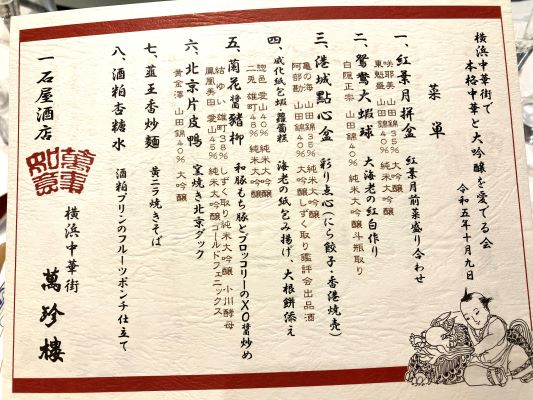 横浜中華街で
本格中華と大吟醸を愛でる会
令和五年十月九日
菜單
一、紅葉月拼盆 紅葉月前菜盛り合わせ
咲耶美 山田錦35% 大吟醸
東魁盛 山田錦40% 純米大吟醸
二、鴛鴦大蝦球 大海老の紅白作り
白隠正宗 山田錦40% 純米大吟醸斗瓶取り
三、港城點心盒 彩り点心(にら餃子・香港焼売)
亀の海 山田錦35% 純米大吟醸
阿部勘 山田錦40% 大吟醸しずく取り鑑評会出品酒
四、威化紙包蝦蘿蔔糕 海老の紙包み揚げ、大根餅添え
惣邑 愛山40% 純米大吟醸
二兎 雄町48% 純米大吟醸
五、蘭花醤豬柳 和豚もち豚とブロッコリーのXO醤炒め
結ゆい 雄町38% しずく取り純米大吟醸 小川酵母
鳳凰美田 愛山45% 純米大吟醸ゴールドフェニックス
六、北京片皮鴨 窯焼き北京ダック
黄金澤 山田錦40% 大吟醸
七、韮王香炒麺 黄ニラ焼きそば
八、酒粕杏糖水 酒粕プリンのフルーツポンチ仕立て
一石屋酒店
萬事如意
横浜中華街 萬珍樓